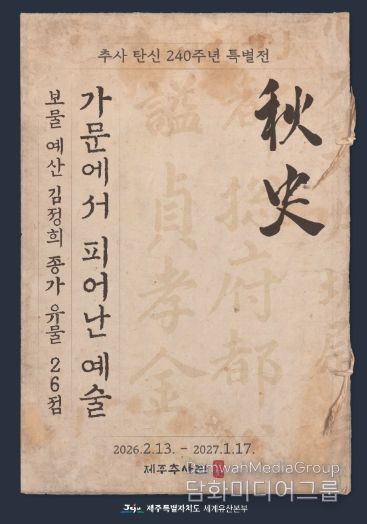 추사 탄신 240주년 특별전
秋史
가문에서 피어난 예술
보물 예산 김정희 종가 유물 26점
謚貞孝金
府都
2026.2.13. - 2027.1.17.
제주추사관
DamwanMediaGroup
담화미디어그룹
Jeju 제주특별자치도 세계유산본부